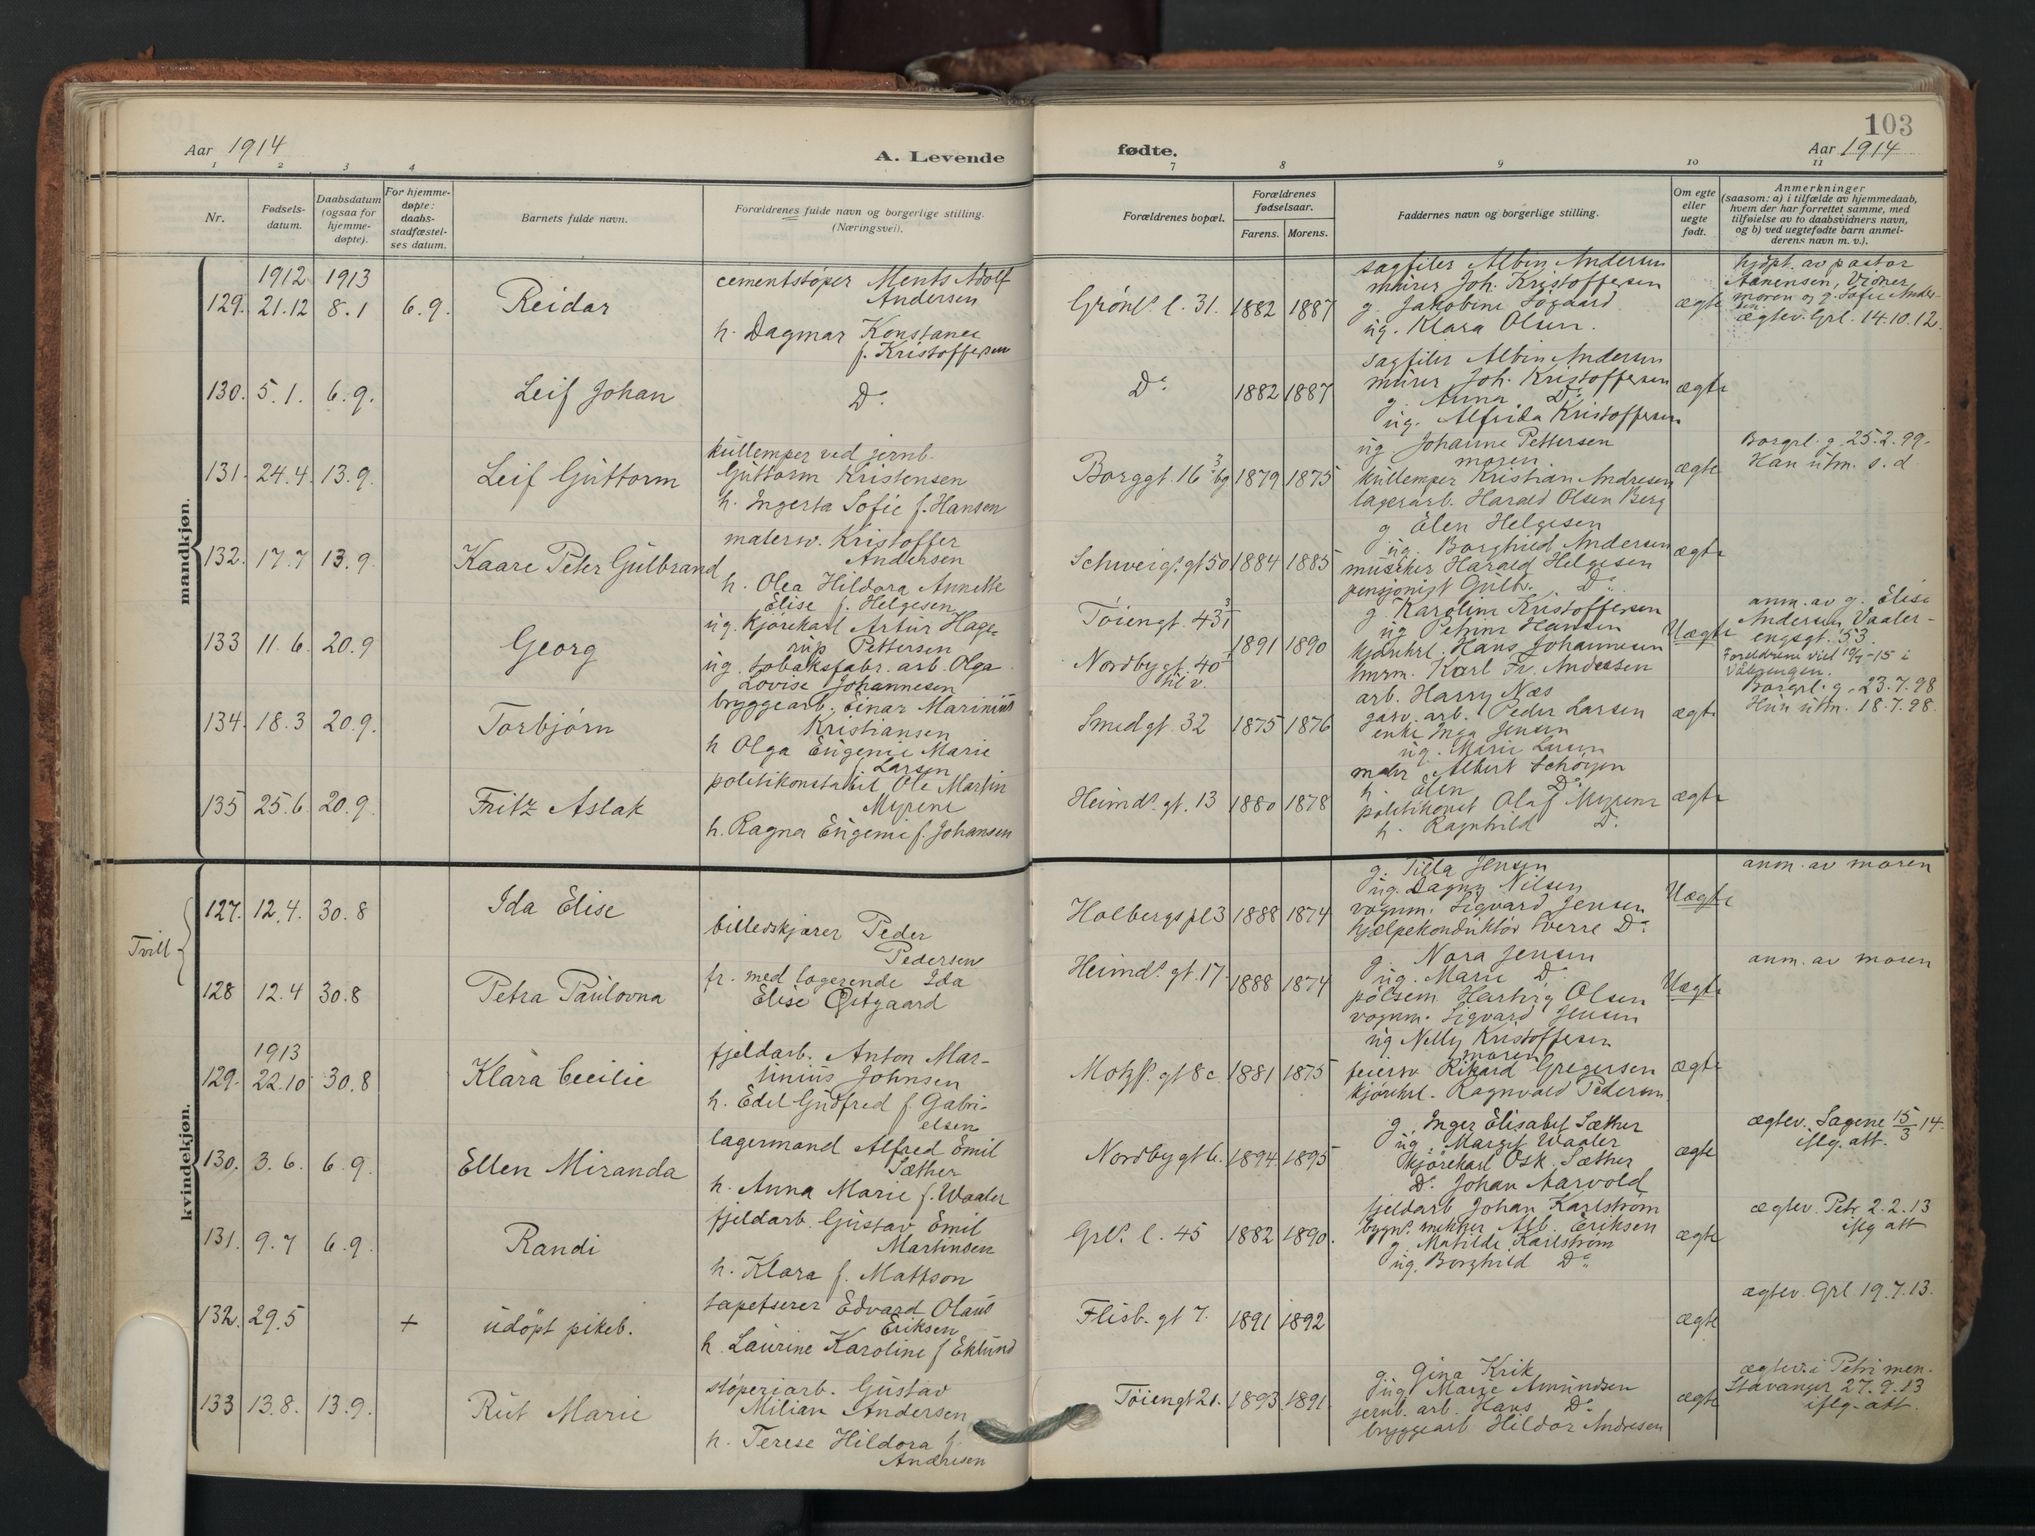 Aar 1914
A. Levende
fødte.
103
Aar 1914
1 2 3 4 7 8 9 10 11
Nr.
Fødsels-
datum.
Daabsdatum
(ogsaa for
hjemme-
døpte).
For hjemme-
døpte:
daabs-
stadfæstel-
ses datum.
Barnets fulde navn.
Forældrenes fulde navn og borgerlige stilling.
(Næringsvei).
Forældrenes bopæl.
Forældrenes
fødselsaar.
Farens. Morens.
Faddernes navn og borgerlige stilling.
Om egte
eller
uegte
født.
Anmerkninger
(saasom: a) i tilfælde av hjemmedaab,
hvem der har forrettet samme, med
tilføielse av to daabsvidners navn,
og b) ved uegtefødte barn anmel-
derens navn m. v.).
mandkjøn.
1912 1913
129. 21.12 8.1 6.9. Reidar
cementstøper Ments Adolf
Andersen
h. Dagmar Konstance
f. Kristoffersen
Grønl. l. 31. 1882 1887
sagfiler Albin Andersen
murer Joh. Kristoffersen
g. Jakobine
ug. Klara Olsen.
ægte
hjdpt. av pastor
Aanensen, Vidner
moren og g. Sofie Ander-
sen
ægtev. Grl. 14.10.12.
130. 5.1. 6.9. Leif Johan
Do
Do 1882 1887
sagfiler Albin Andersen
murer Joh. Kristoffersen
g. Anna Do
ug. Alfrida Kristoffersen
ægte
131. 24.4. 13.9. Leif Guttorm
kullemper ved jernb.
Guttorm Kristensen
h. Ingerta Sofie f. Hansen
Borggt. 16 3/bg 1879 1875
ug Johanne Pettersen
moren
kullemper Kristian Andresen
lagerarb. Harald Olsen Berg
ægte
Borgrl. g. 25.2.99.
Han utm. s. d
132. 17.7 13.9. Kaare Peter Gulbrand
malersv. Kristoffer
Andersen
h. Olea Hildora Annette
Elise f. Helgesen
Schweigs. gt 50 1884 1885
g Elen Helgesen
ug. Borghild Andersen
musiker Harald Helgesen
pensjonist Gulb. Do
ægte
133 11.6. 20.9 Georg
ug. Kjørekarl Artur Hage-
rup Pettersen
ug. tobaksfabr. arb. Olga
Lovise Johannesen
Tøiengt. 43 3/1
Nordbygt. 40 1/
til v.
1891 1890
g Karoline Kristoffersen
ug Petrine Hansen
kjørekrl. Hans Johannesen
tmrm. Karl Fr. Andersen
Uægte
anm. av g. Elise
Andersen Vaaler-
engsgt. 53.
Foreldrene viet 10/7-15 i
Vålerengen.
134. 18.3 20.9. Torbjørn
bryggearb. Einar Marinius
Kristiansen
h Olga Eugenie Marie
f. Larsen
Smedgt. 32 1875 1876
arb. Harry Næs
gasv. arb. Peder Larsen
enke Inga Jensen
ug. Marie Larsen
ægte
Borgrl. g. 23.7.98
Hun utm. 18.7.98.
135 25.6. 20.9. Fritz Aslak
politikonstabel Ole Martin
Myrene
h. Ragna Eugenie f. Johansen
Heimds. gt. 13 1880 1878
maler Albert Schøyen
h. Elen Do
politikonst Olaf Myrene
h. Ragnhild Do
ægte
kvindekjøn.
Tvill
127. 12.4. 30.8 Ida Elise
billedskjærer Peder
Pedersen
fr. med logerende Ida
Elise Østgaard
Holbergspl 3 1888 1874
g. Tilla Jensen
ug. Dagny Nilsen
vognm. Sigvard Jensen
hjælpekonduktør Sverre Do
Uægte
anm. av moren
128 12.4 30.8 Petra Paulovna
Heimds. gt. 17. 1888 1874
g. Nora Jensen
ug. Marie Do
pølsem. Hartvig Olsen
vognm. Sigvard Jensen
Uægte
anm. av moren
1913
129. 22.10 30.8 Klara Cecilie
fjeldarb. Anton Mar-
tinius Johnsen
h. Edel Gudfred f. Gabri-
elsen
Motzf. gt 8 c. 1881 1875
ug Nelly Kristoffersen
moren
feiersv Rikard Gregersen
kjørekrl. Ragnvald Pedersen
ægte
130. 3.6. 6.9. Ellen Miranda
lagermand Alfred Emil
Sæther
h. Anna Marie f. Waaler
Nordbygt 6. 1894 1895
g. Inger Elisabet Sæther
ug. Margit Waaler
kjørekarl Osk. Sæther
Do Johan Aarvold
ægte
ægtev. Sagene 15/3 14.
iflg. att.
131. 9.7 6.9. Randi
fjeldarb. Gustav Emil
Martinsen
h. Klara f. Mattson
Grls. l. 45 1882 1890.
fjeldarb Johan Karlström
bygns. snekker Alb. Eriksen
g. Matilde Karlström
ug. Borghild Do
ægte
ægtev. Petr 2.2.13
iflg att
132. 29.5 + udøpt pikeb.
tapetserer Edvard Olaus
Eriksen
h. Laurine Karoline f Eklund
Flisb. gt 7. 1891 1892
ægte
ægtev. Grl 19.7.13.
133 13.8. 13.9. Rut Marie
støperiarb. Gustav
Milian Andersen
h. Terese Hildora f.
Andresen
Tøiengt 21. 1893 1891.
g. Gina Krik
ug. Marie Amundsen
jernb. arb. Hans Do
bryggearb Hildor Andresen
ægte
ægtev. i Petri men.
Stavanger 27.9.13
iflg. att.